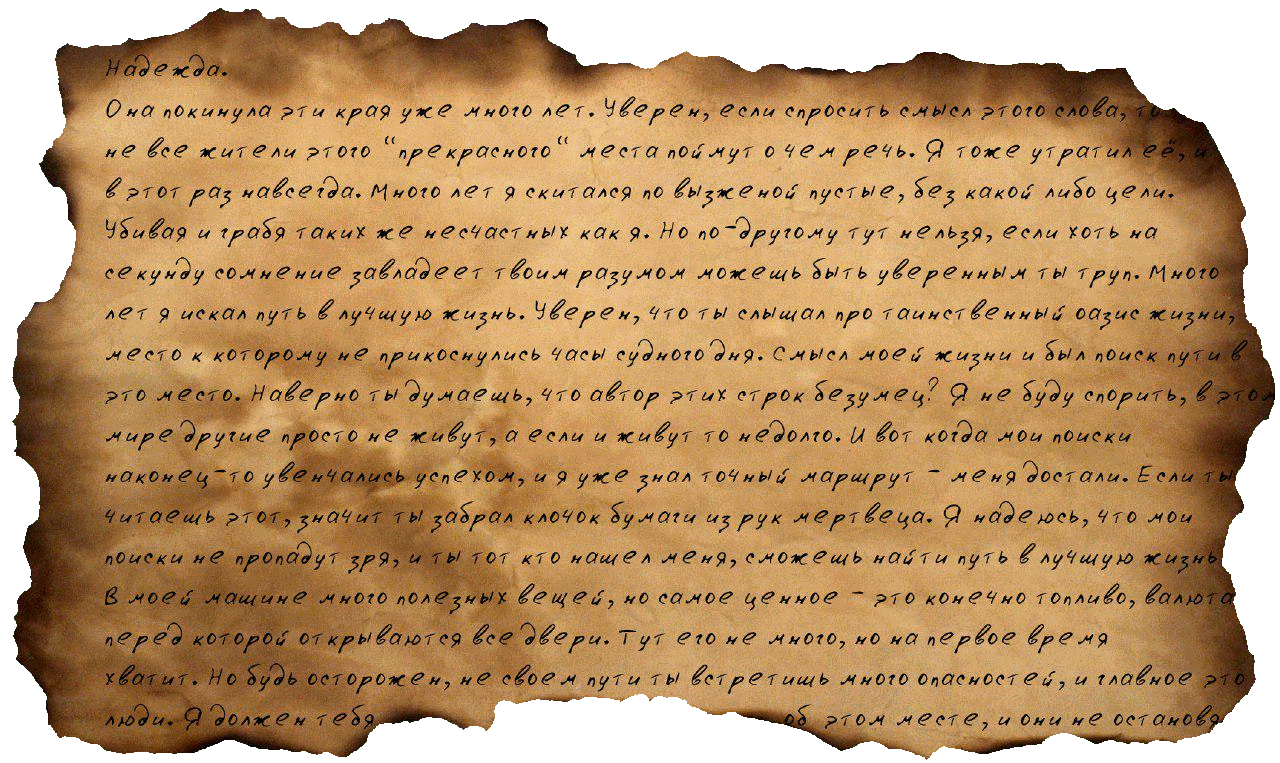 Надежда.
Она покинула эти края уже много лет. Уверен, если спросить смысл этого слова, то
не все жители этого "прекрасного" места поймут о чем речь. Я тоже утратил её, и
в этот раз навсегда. Много лет я скитался по вызженой пустые, без какой либо цели.
Убивая и грабя таких же несчастных как я. Но по-другому тут нельзя, если хоть на
секунду сомнение завладеет твоим разумом можешь быть уверенным ты труп. Много
лет я искал путь в лучшую жизнь. Уверен, что ты слышал про таинственный оазис жизни,
место к которому не прикоснулись часы судного дня. Смысл моей жизни и был поиск пути в
это место. Наверно ты думаешь, что автор этих строк безумец? Я не буду спорить, в этом
мире другие просто не живут, а если и живут то недолго. И вот когда мои поиски
наконец-то увенчались успехом, и я уже знал точный маршрут - меня достали. Если ты
читаешь этот, значит ты забрал клочок бумаги из рук мертвеца. Я надеюсь, что мои
поиски не пропадут зря, и ты тот кто нашел меня, сможешь найти путь в лучшую жизнь
В моей машине много полезных вещей, но самое ценное - это конечно топливо, валюта
перед которой открываются все двери. Тут его не много, но на первое время
хватит. Но будь осторожен, не своем пути ты встретишь много опасностей, и главное это
люди. Я должен тебя об этом месте, и они не остановя